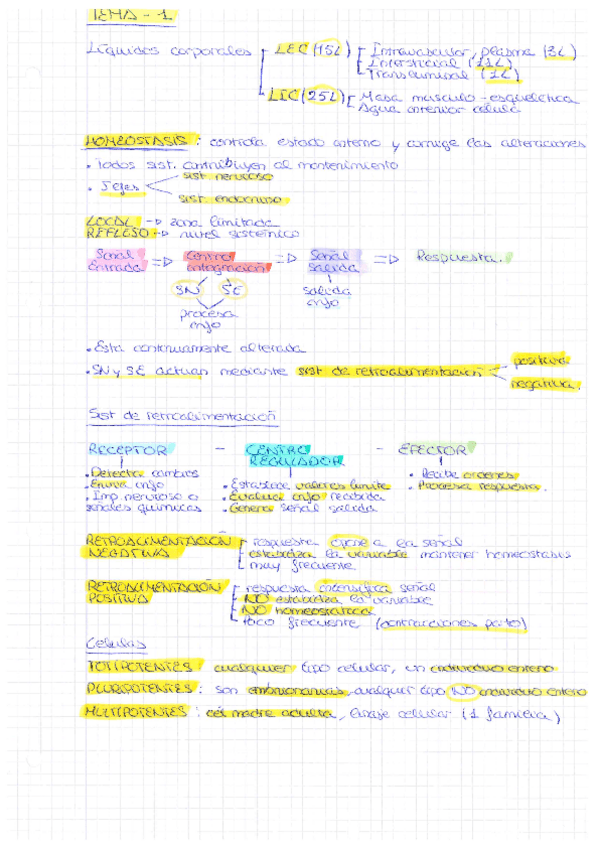 TEMA - 1
Líquidos corporales
LEC (15L)
Intravascular, plasma (3L)
Intersticial (11L)
Transluminal (1L)
LIC (25L)
Masa musculo-esquelética
Agua interior célula
HOMEOSTASIS : controla estado interno y corrige las alteraciones
• Todos sist. contribuyen al mantenimiento
• Jefes
sist. nervioso
sist. endocrino
LOCAL -> zona limitada
REFLEJO -> nivel sistémico
Señal entrada => Control integración => Señal salida => Respuesta.
SN SE
salida info
procesa info
• Está continuamente alterada
• SN y SE actúan mediante sist de retroalimentación
positiva
negativa.
Sist de retroalimentación
RECEPTOR - CENTRO REGULADOR - EFECTOR
• Detecta cambios
• Envía info
• Imp. nervioso o señales químicas
• Establece valores límite
• Evalúa info recibida
• Genera señal salida
• Recibe órdenes
• Procesa respuesta.
RETROALIMENTACIÓN NEGATIVA
respuesta opone a la señal
estabiliza la variable mantener homeostasis
muy frecuente
RETROALIMENTACIÓN POSITIVA
respuesta intensifica señal
NO estabiliza la variable
NO homeostática
Poco frecuente (contracciones parto)
Células
TOTIPOTENTES : cualquier tipo celular, un individuo entero
PLURIPOTENTES : son embrionarias, cualquier tipo NO individuo entero
MULTIPOTENTES : cél madre adulta, linaje celular (1 familia)